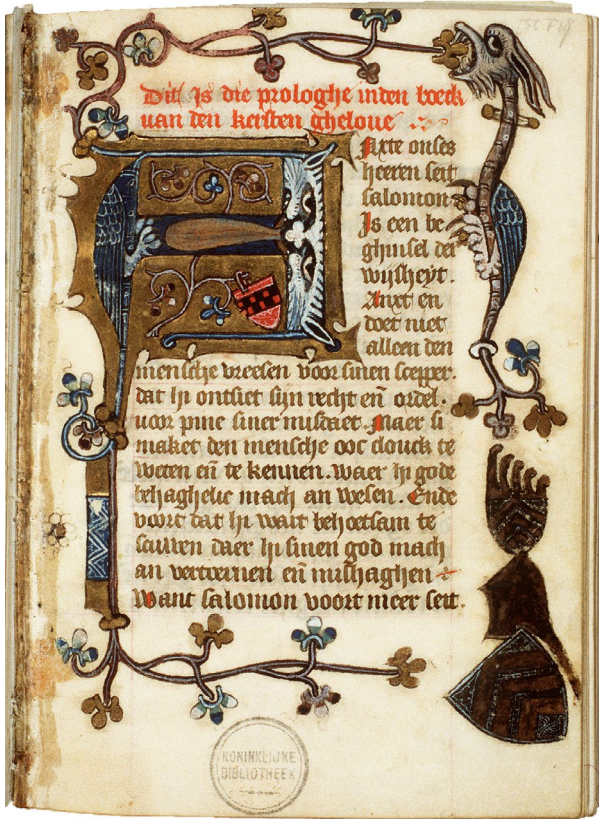 133 F 18
Dit Is die prologhe inden boeck
uan den kersten gheloue
Axte onses
heeren seit
salomon
Is een be
ghinsel der
wijsheyt.
Anxt en
doet niet
alleen den
mensche vreesen voor sinen scepper.
dat hi ontsiet sijn recht en̄ ordel.
uoor pine siner misdaet. Maer si
maket den mensche ooc clouck te
weten en̄ te kennen. waer hi gode
behaghelic mach an wesen. Ende
voort dat hi wart behoetsam te
scuwen daer hi sinen god mach
an vertoernen en̄ mishaghen
Want salomon voort meer seit.
KONINKLIJKE
BIBLIOTHEEK